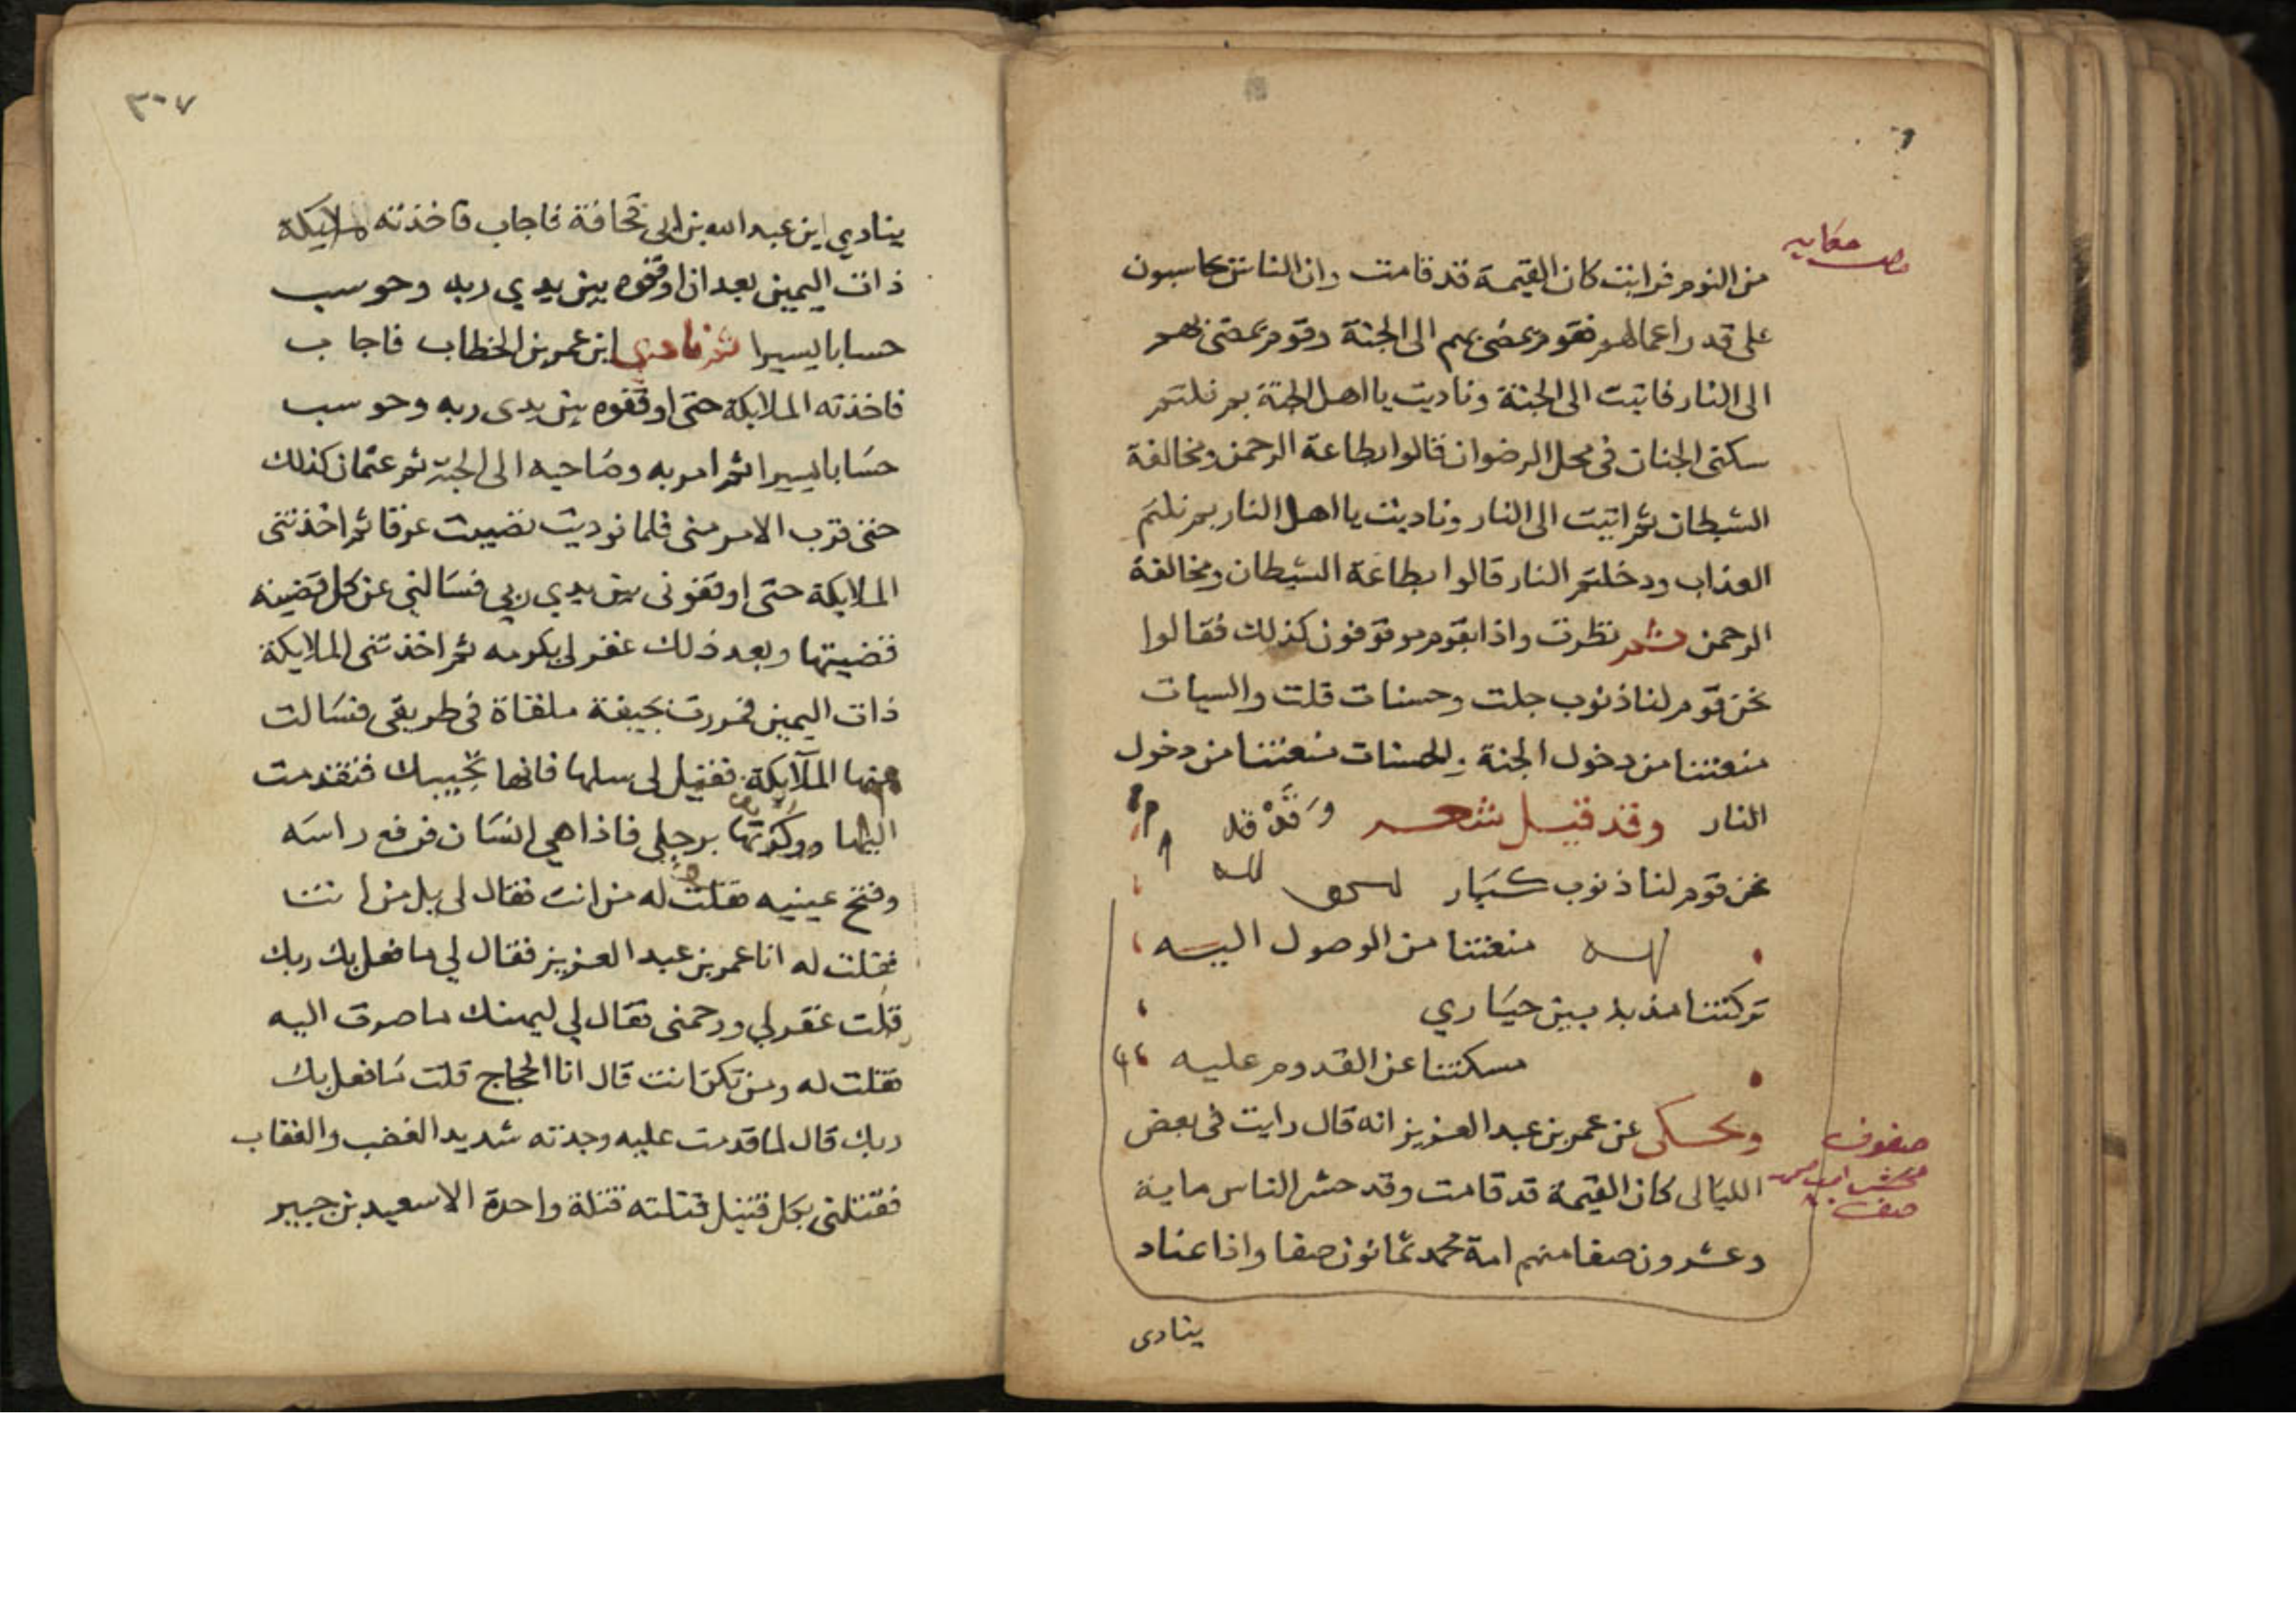 حكايه
من النوم فرايت كان القيمة قد قامت وان الناس يحاسبون
على قدر اعمالهم فقوم يمضى بهم الى الجنة وقوم يمضى بهم
الى النار فاتيت الى الجنة وناديت يا اهل الجنة بم نلتم
سكنى الجنان فى محل الرضوان قالوا بطاعة الرحمن ومخالفة
الشيطان ثم اتيت الى النار وناديت يا اهل النار بم نلتم
العذاب ودخلتم النار قالوا بطاعة الشيطان ومخالفة
الرحمن ثم نظرت واذا بقوم موقوفون كذلك فقالوا
نحن قوم لنا ذنوب جلت وحسنات قلت والسيات
منعتنا من دخول الجنة والحسنات منعتنا من دخول
النار وقد قيل شعر وقد قد
نحن قوم لنا ذنوب كبار
منعتنا من الوصول اليه
تركتنا مذبذبين حيارى
مسكتنا عن القدوم عليه
ويحكى عن عمر بن عبد العزيز انه قال رايت فى بعض
الليالى كان القيمة قد قامت وقد حشر الناس ماية
وعشرون صفا منهم امة محمد ثمانون صفا واذا عناد
صفوف
صف
ينادى
٣٠٧
ينادي اين عبد الله بن ابى قحافة فاجاب فاخذته ملايكة
ذات اليمين بعد ان اوقفوه بين يدي ربه وحوسب
حسابا يسيرا ثم نادى اين عمر بن الخطاب فاجاب
فاخذته الملايكة حتى اوقفوه بين يدى ربه وحوسب
حسابا يسيرا ثم امر به وصاحبه الى الجنة ثم عثمان كذلك
حتى قرب الامر منى فلما نوديت تصببت عرقا ثم اخذتنى
الملايكة حتى اوقفونى بين يدي ربي فسالني عن كل قضية
قضيتها وبعد ذلك غفر لى بكرمه ثم اخذتنى الملايكة
ذات اليمين فمررت بجيفة ملقاة فى طريقى فسالت
عنها الملآيكة فقيل لى سلها فانها تجيبك فتقدمت
اليها ووكزتها برجلى فاذا هي انسان فرفع راسه
وفتح عينيه فقلت له من انت فقال لى بل من انت
فقلت له انا عمر بن عبد العزيز فقال لي ما فعل بك ربك
قلت غفر لي ورحمنى فقال لي ليهنك ما صرت اليه
فقلت له ومن تكن انت قال انا الحجاج قلت ما فعل بك
ربك قال لما قدمت عليه وجدته شديد الغضب والعقاب
فقتلنى بكل قتيل قتلته قتلة واحدة الا سعيد بن جبير